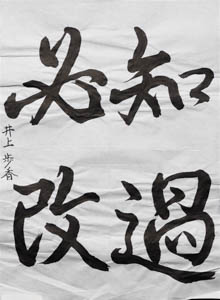 知過
必改
井上歩香